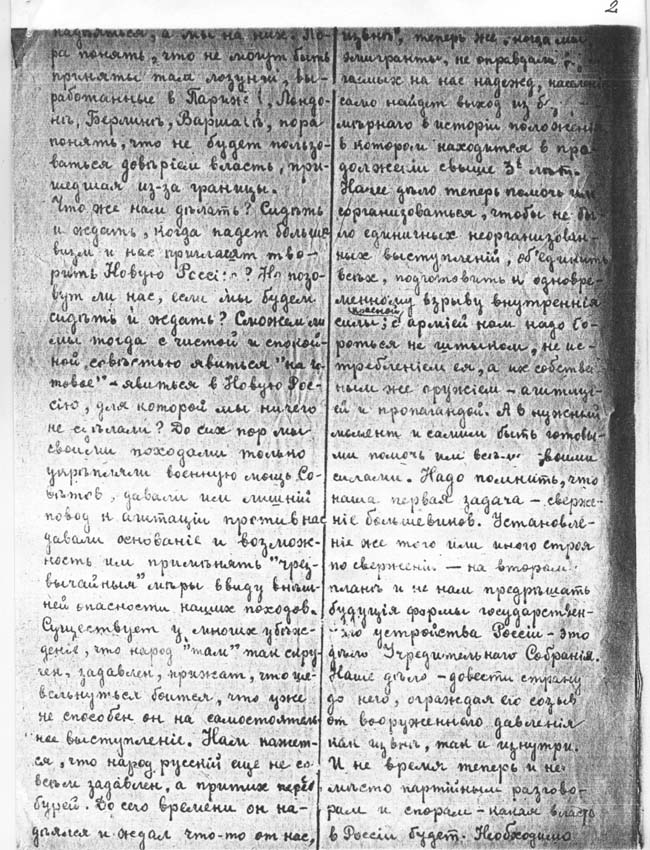 2
надѣяться, а мы на них. По-
ра понять, что не могут быть
приняты там лозунги, вы-
работанные в Парижѣ, Лондо-
нѣ, Берлинѣ, Варшавѣ, пора
понять, что не будет пользо-
ваться довѣріем власть, при-
шедшая из-за границы.
Что же нам дѣлать? Сидѣть
и ждать, когда падет больше-
визм и нас пригласят тво-
рить Новую Россію? Но позо-
вут ли нас, если мы будем
сидѣть и ждать? Сможем ли
мы тогда с чистой и спокой-
ной совѣстью явиться "на го-
товое" – явиться в Новую Рос-
сію, для которой мы ничего
не сдѣлали? До сих пор мы
своими походами только
укрѣпляли военную мощь Со-
вѣтов, давали им лишній
повод к агитаціи против нас
давали основаніе и возмож-
ность им примѣнять "чрез-
вычайныя" мѣры ввиду внѣш-
ней опасности наших походов.
Существует у многих убѣж-
деніе, что народ "там" так скру-
чен, задавлен, прижат, что ше-
вельнуться боится, что уже
не способен он на самостоятель-
ное выступленіе. Нам кажет-
ся, что народ русскій еще не со-
всѣм задавлен, а притих перед
бурей. До сего времени он на-
дѣялся и ждал что-то от нас,
извнѣ, теперь же, когда мы
эмигранты, не оправдали
гаемых на нас надежд, населеніе
само найдет выход из
мѣрнаго в исторіи положенія
в котором находится в про-
долженіи свыше 3х лѣт.
Наше дѣло теперь помочь им
сорганизоваться, чтобы не бы-
ло единичных неорганизован-
ных выступленій, об'единить
всѣх, подготовить к одновре-
менному взрыву внутреннія
силы; с красной арміей нам надо бо-
роться не штыком, не ис-
требленіем ея, а их собствен-
ным же оружіем – агитаці-
ей и пропагандой. А в нужный
момент и самим быть готовы-
ми помочь им всѣми своими
силами. Надо помнить, что
наша первая задача – сверже-
ніе большевиков. Установле-
ніе же того или иного строя
по сверженіи – на втором
планѣ и не нам предрѣшать
будущія формы государствен-
наго устройства Россіи – это
дѣло Учредительнаго Собранія.
Наше дѣло – довести страну
до него, ограждая его созыв
от вооруженнаго давленія
как извнѣ, так и изнутри.
И не время теперь и не
мѣсто партійным разгово-
рам и спорам – какая власть
в Россіи будет. Необходимо